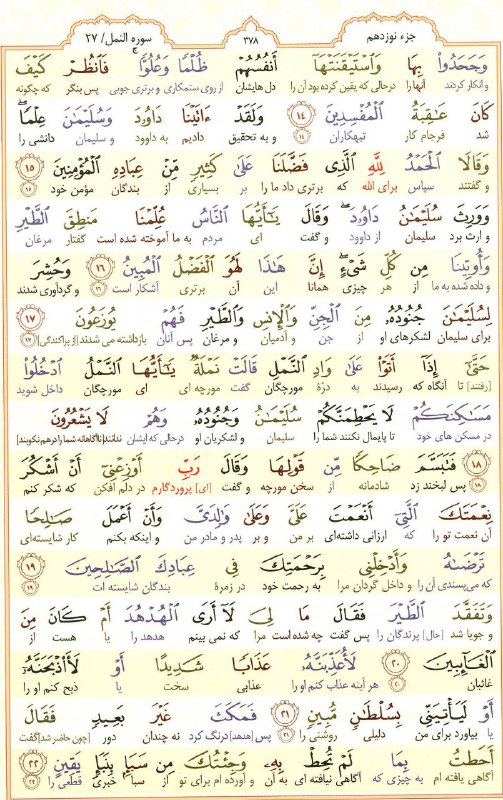 جزء نوزدهم ۳۷۸ سوره النمل / ۲۷
وَجَحَدُوا۟ بِهَا وَٱسْتَيْقَنَتْهَآ أَنفُسُهُمْ ظُلْمًا وَعُلُوًّا ۚ فَٱنظُرْ كَيْفَ
و انکار کردند آنها را درحالی که یقین کرده بود آن را دل هایشان از روی ستمکاری و برتری جویی پس بنگر که چگونه
كَانَ عَـٰقِبَةُ ٱلْمُفْسِدِينَ ۱۴ وَلَقَدْ ءَاتَيْنَا دَاوُۥدَ وَسُلَيْمَـٰنَ عِلْمًا ۖ
شد فرجام کار تبهکاران ۱۴ و به تحقیق دادیم به داوود و سلیمان دانشی را
وَقَالَا ٱلْحَمْدُ لِلَّهِ ٱلَّذِى فَضَّلَنَا عَلَىٰ كَثِيرٍ مِّنْ عِبَادِهِ ٱلْمُؤْمِنِينَ ۱۵
و گفتند سپاس برای الله که برتری داد ما را بر بسیاری از بندگان مؤمن خود ۱۵
وَوَرِثَ سُلَيْمَـٰنُ دَاوُۥدَ ۖ وَقَالَ يَـٰٓأَيُّهَا ٱلنَّاسُ عُلِّمْنَا مَنطِقَ ٱلطَّيْرِ
و ارث برد سلیمان از داوود و گفت ای مردم به ما آموخته شده است گفتار مرغان
وَأُوتِينَا مِن كُلِّ شَىْءٍ ۖ إِنَّ هَـٰذَا لَهُوَ ٱلْفَضْلُ ٱلْمُبِينُ ۱۶ وَحُشِرَ
و داده شده به ما از هر چیزی همانا این آن برتری آشکار است ۱۶ و گردآوری شدند
لِسُلَيْمَـٰنَ جُنُودُهُۥ مِنَ ٱلْجِنِّ وَٱلْإِنسِ وَٱلطَّيْرِ فَهُمْ يُوزَعُونَ ۱۷
برای سلیمان لشکرهای او از جن و آدمیان و مرغان پس آنان بازداشته می شدند [از پراکندگی] ۱۷
حَتَّىٰٓ إِذَآ أَتَوْا۟ عَلَىٰ وَادِ ٱلنَّمْلِ قَالَتْ نَمْلَةٌ يَـٰٓأَيُّهَا ٱلنَّمْلُ ٱدْخُلُوا۟
[رفتند] تا آنگاه که رسیدند به درّهٔ مورچگان گفت مورچه ای ای مورچگان داخل شوید
مَسَـٰكِنَكُمْ لَا يَحْطِمَنَّكُمْ سُلَيْمَـٰنُ وَجُنُودُهُۥ وَهُمْ لَا يَشْعُرُونَ
در مسکن های خود تا پایمال نکنند شما را سلیمان و لشکریان او درحالی که ایشان ندانند [ناآگاهانه شما را درهم نکوبند]
۱۸ فَتَبَسَّمَ ضَاحِكًا مِّن قَوْلِهَا وَقَالَ رَبِّ أَوْزِعْنِىٓ أَنْ أَشْكُرَ
۱۸ پس لبخند زد شادمانه از سخن مورچه و گفت [ای] پروردگارم در دلم افکن که شکر کنم
نِعْمَتَكَ ٱلَّتِىٓ أَنْعَمْتَ عَلَىَّ وَعَلَىٰ وَٰلِدَىَّ وَأَنْ أَعْمَلَ صَـٰلِحًا
آن نعمت تو را که ارزانی داشته‌ای بر من و بر پدر و مادر من و اینکه بکنم کار شایسته‌ای
تَرْضَىٰهُ وَأَدْخِلْنِى بِرَحْمَتِكَ فِى عِبَادِكَ ٱلصَّـٰلِحِينَ ۱۹
که می‌پسندی آن را و داخل گردان مرا به رحمت خود در زمرهٔ بندگان شایسته ات ۱۹
وَتَفَقَّدَ ٱلطَّيْرَ فَقَالَ مَا لِىَ لَآ أَرَى ٱلْهُدْهُدَ أَمْ كَانَ مِنَ
و جویا شد [حال] پرندگان را پس گفت چه شده است مرا که نمی بینم هدهد را یا هست از
ٱلْغَآئِبِينَ ۲۰ لَأُعَذِّبَنَّهُۥ عَذَابًا شَدِيدًا أَوْ لَأَا۟ذْبَحَنَّهُۥٓ
غائبان ۲۰ هر آینه عذاب کنم او را عذابی سخت یا ذبح کنم او را
أَوْ لَيَأْتِيَنِّى بِسُلْطَـٰنٍ مُّبِينٍ ۲۱ فَمَكَثَ غَيْرَ بَعِيدٍ فَقَالَ
یا بیاورد برای من دلیلی روشنی را ۲۱ پس [هدهد] درنگ کرد نه چندان دور [چون حاضر شد] گفت
أَحَطتُ بِمَا لَمْ تُحِطْ بِهِۦ وَجِئْتُكَ مِن سَبَإٍۭ بِنَبَإٍ يَقِينٍ ۲۲
آگاهی یافته ام به چیزی که آگاهی نیافته ای به آن و آورده ام برای تو از سبا خبری قطعی را ۲۲